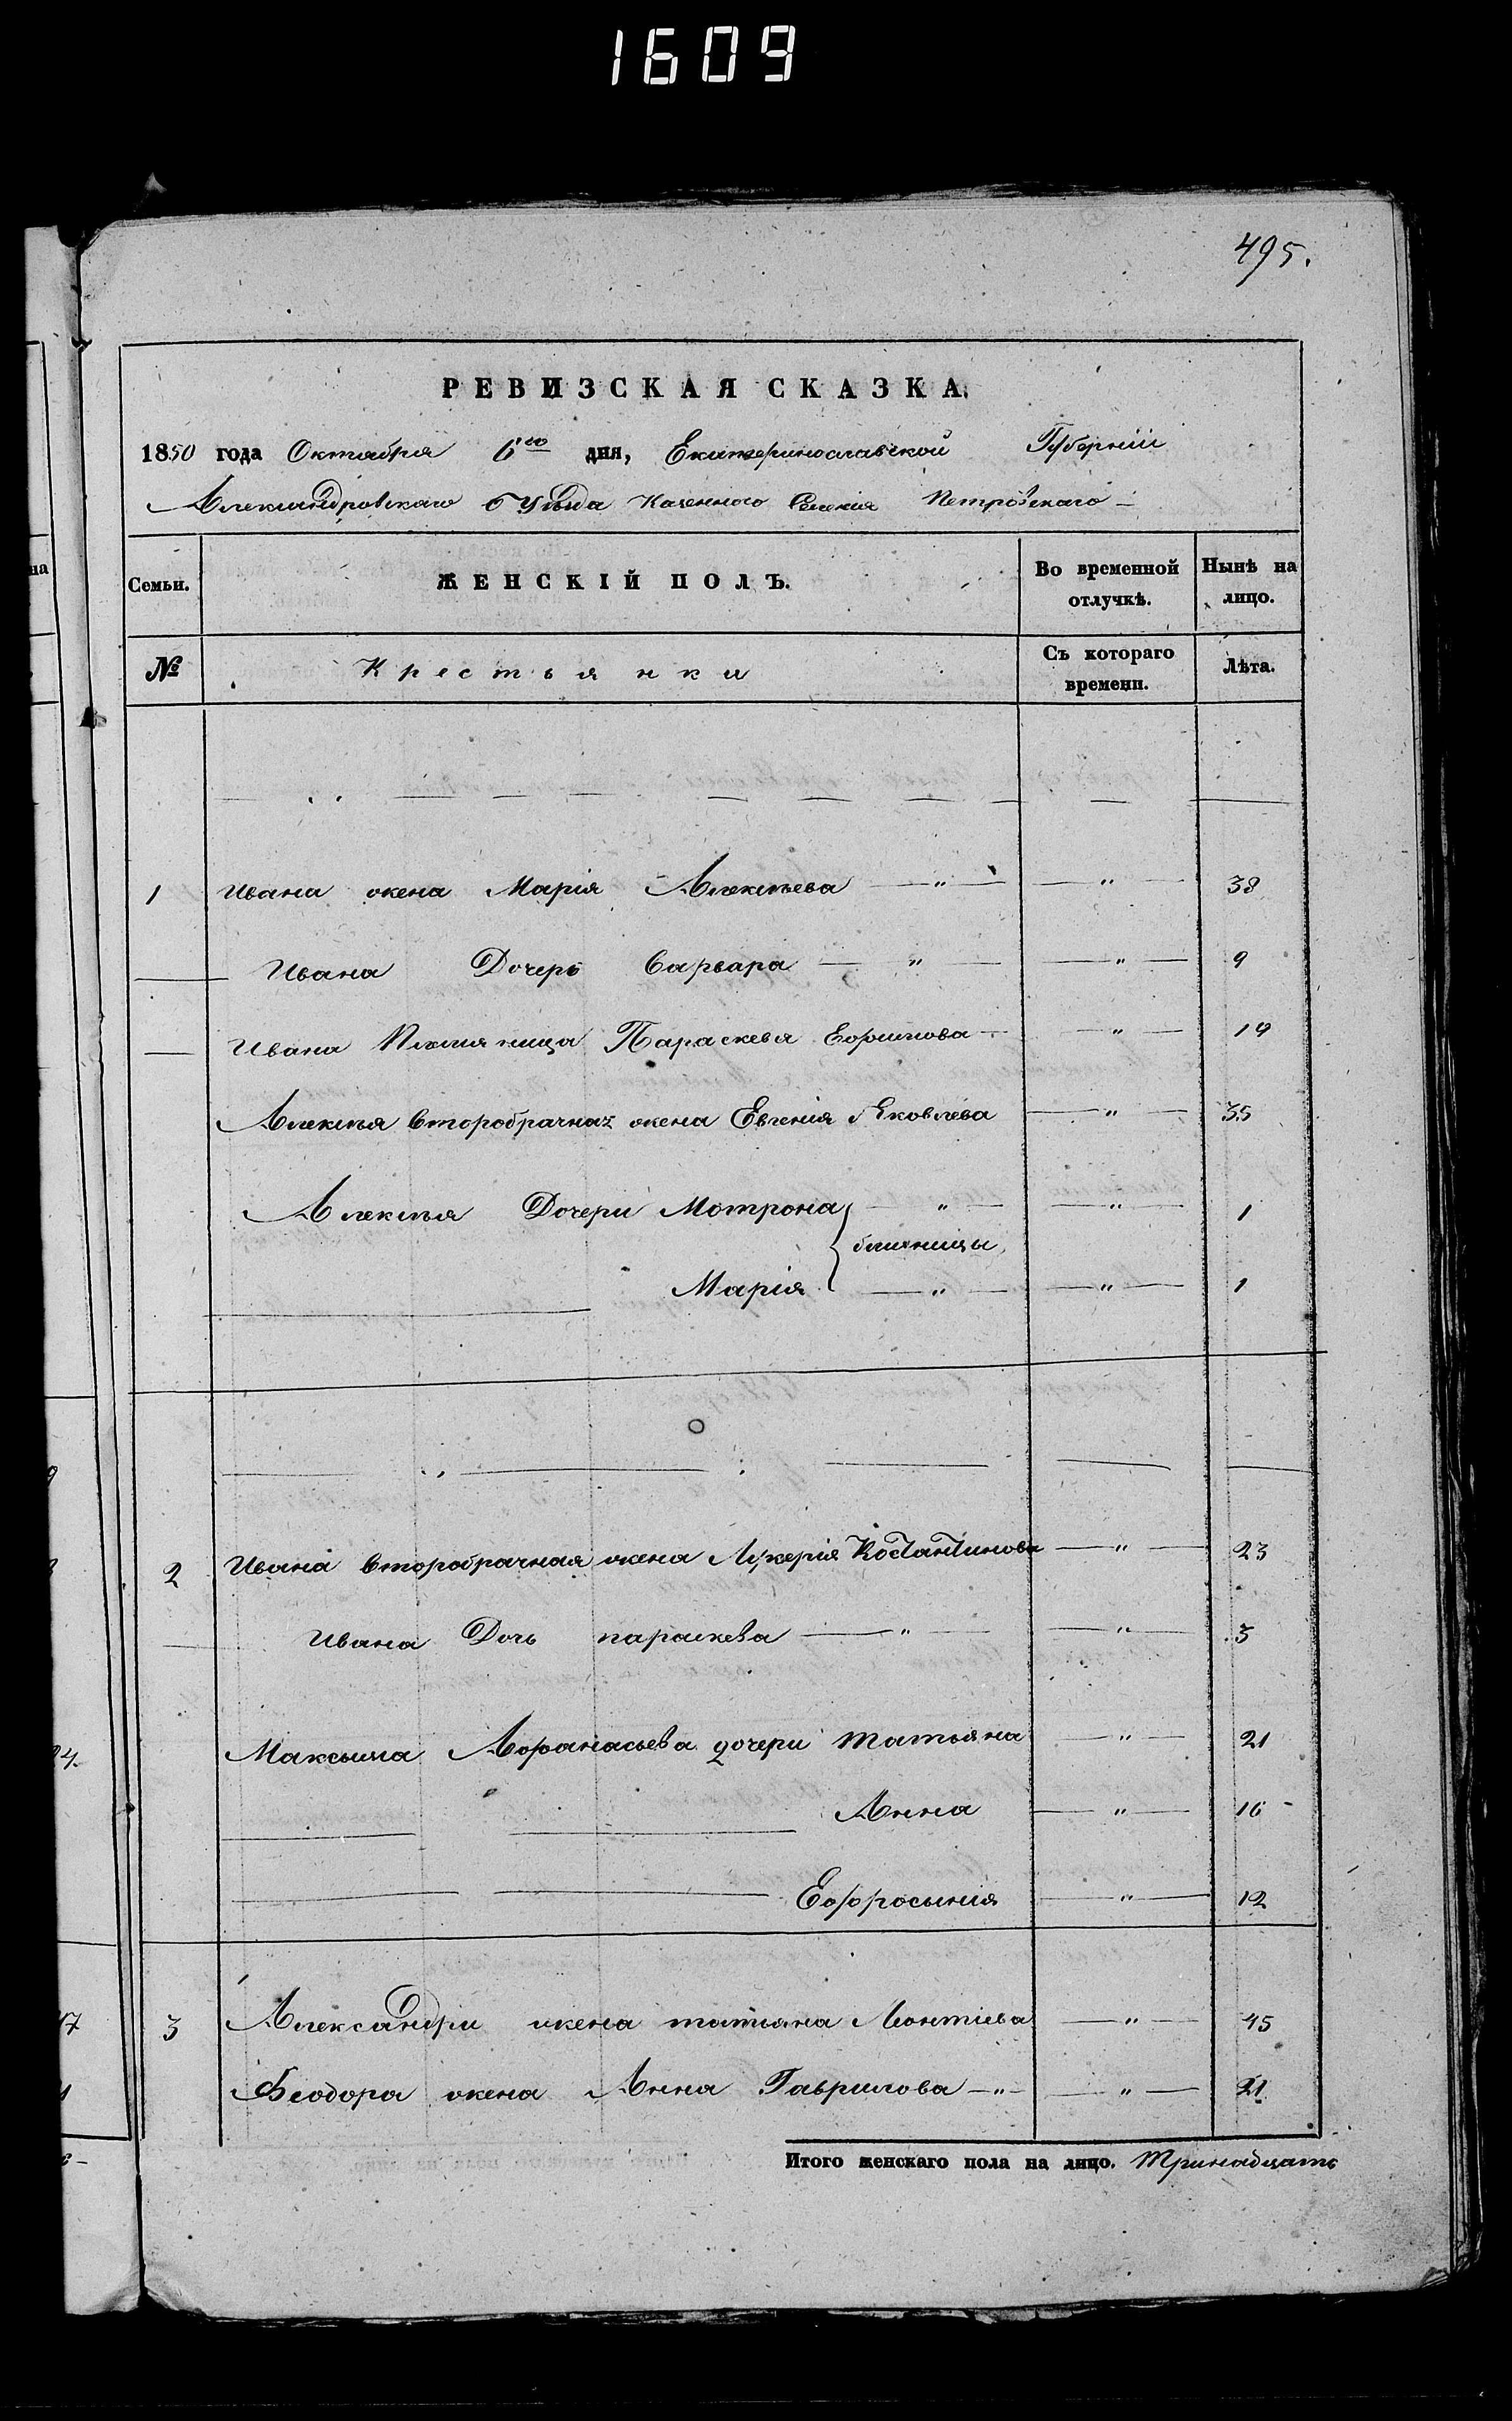 1609
495.
РЕВИЗСКАЯ СКАЗКА.
1850 года Октября 6го дня, Екатеринославской Губерніи
Александровскаго Уѣзда Казенного Селенія Петровскаго
Семьи. ЖЕНСКІЙ ПОЛЪ. Во временной отлучкѣ. Нынѣ на лицо.
№ Крестьянки Съ котораго времени. Лѣта.
1 Ивана жена Марія Алексѣева — " — — " — 38
Ивана Дочерь Варвара — " — — " — 9
Ивана Племяница Параскевья Ефимова — " — 19
Алексѣя второбрачная жена Евгенія Яковлева — " — 35
Алексѣя Дочери Мотрона — " — — " — 1
близницы
Марія — " — — " — 1
2 Ивана второбрачная жена Лукерія Костантинова — " — 23
Ивана Дочь параскева — " — — " — 3
Максыма Афанасьева дочери Татьяна — " — 21
Анна — " — 16
Ефросынія — " — 12
3 Александри жена татіяна Леонтіева — " — 45
Феодора жена Анна Гаврилова — " — — " — 21
Итого женскаго пола на лицо. Тринадцать